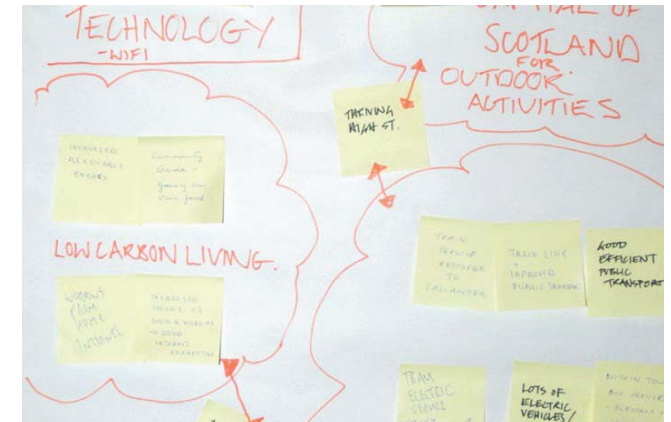 TECHNOLOGY
-WIFI
CAPITAL OF
SCOTLAND
FOR
OUTDOOR
ACTIVITIES
THRIVING
HIGH ST.
INCREASED
RENEWABLE
ENERGY
Community
Garden -
growing our
own food
LOW CARBON LIVING.
WORKING
FROM
HOME
INTERNET
INCREASED
HOME WORKING
GOOD
INTERNET
CONNECTION
TRAIN
SERVICE
RESTORED
TO
CALLANDER
TRAIN LINK
+
IMPROVED
PUBLIC TRANSPORT
GOOD
EFFICIENT
PUBLIC
-TRANSPORT
TRAM
ELECTRIC
SERVICE
LOTS OF
ELECTRIC
VEHICLES/